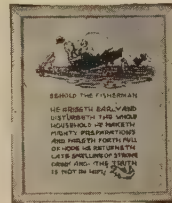 BEHOLD THE FISHERMAN
HE ARISETH EARLY AND
DISTURBETH THE WHOLE
HOUSEHOLD HE MAKETH
MIGHTY PREPARATIONS
AND MAKETH FORTH FULL
OF HOPE HE RETURNETH
LATE SMELLING OF STRONG
DRINK AND THE TRUTH
IS NOT IN HIM